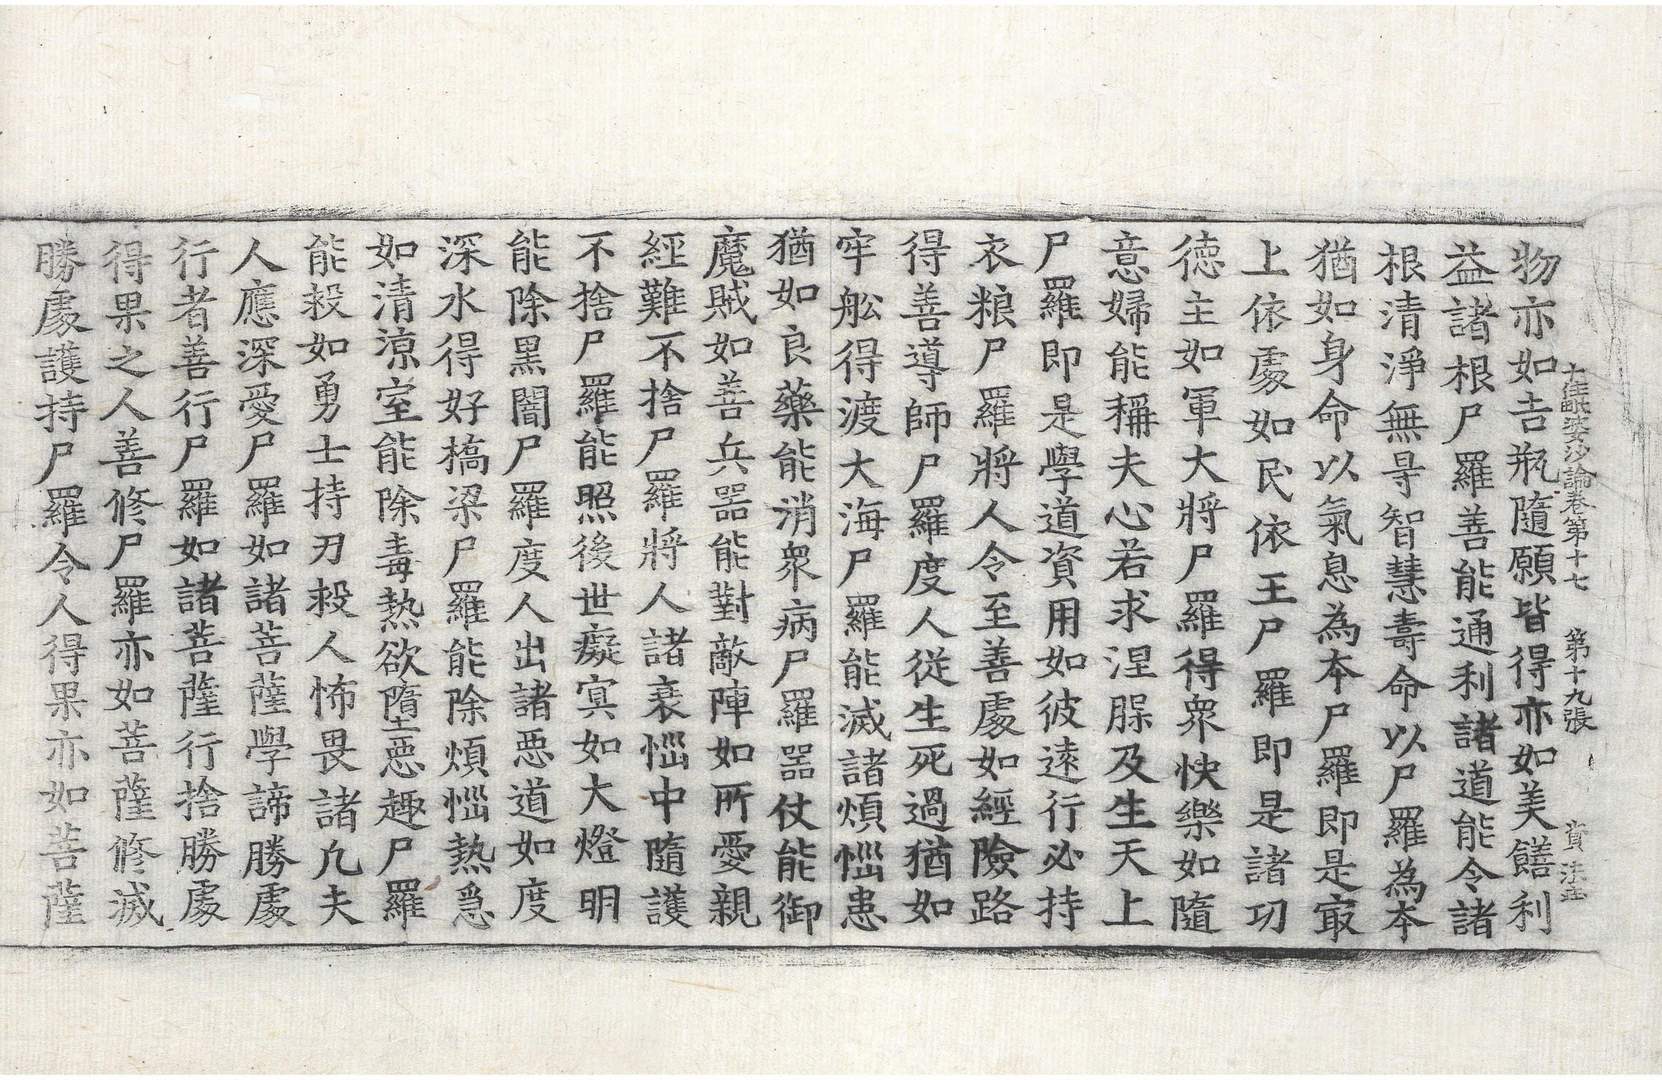 十住毗婆沙論卷第十七 第十九張 賁
物亦如吉瓶隨願皆得亦如美饍利
益諸根尸羅善能通利諸道能令諸
根清淨無㝵智慧壽命以尸羅為本
猶如身命以氣息為本尸羅即是㝡
上依䖏如民依王尸羅即是諸功
德主如軍大將尸羅得衆快樂如隨
意婦能稱夫心若求涅脲及生天上
尸羅即是學道資用如彼遠行必持
衣粮尸羅將人令至善䖏如經險路
得善導師尸羅度人從生死過猶如
牢舩得渡大海尸羅能滅諸煩惱患
猶如良藥能消衆病尸羅噐仗能御
魔賊如善兵噐能對敵陣如所愛親
經難不捨尸羅將人諸衰惱中隨護
不捨尸羅能照後世癡㝠如大燈明
能除黒闇尸羅度人出諸惡道如度
深水得好橋梁尸羅能除煩惱熱急
如清涼室能除毒熱欲墮惡趣尸羅
能救如勇士持刃救人怖畏諸凢夫
人應深愛尸羅如諸菩薩學諦勝䖏
行者善行尸羅如諸菩薩行捨勝䖏
得果之人善修尸羅亦如菩薩修滅
勝䖏護持尸羅令人得果亦如菩薩